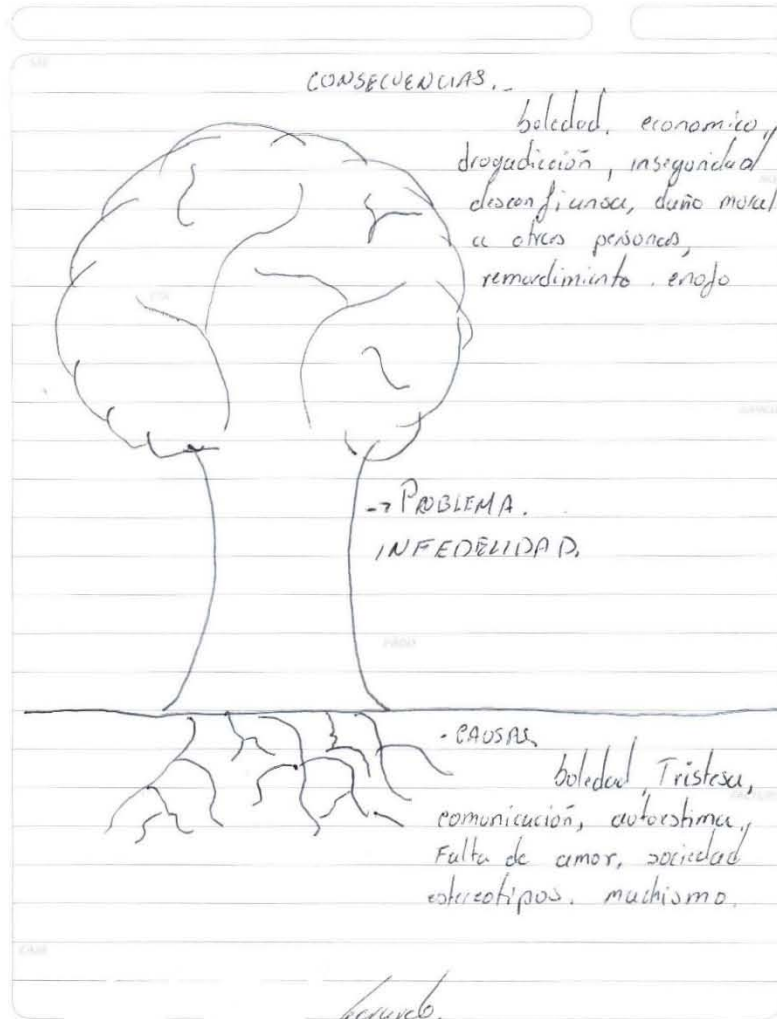 CONSECUENCIAS._
soledad, economico,
drogadicción, inseguridad
desconfiansa, daño moral
a otras personas,
remordimiento. enojo
-> PROBLEMA.
INFEDELIDAD.
- CAUSAS
soledad, Tristesa,
comunicación, autoestima,
Falta de amor, sociedad
estereotipos. machismo.